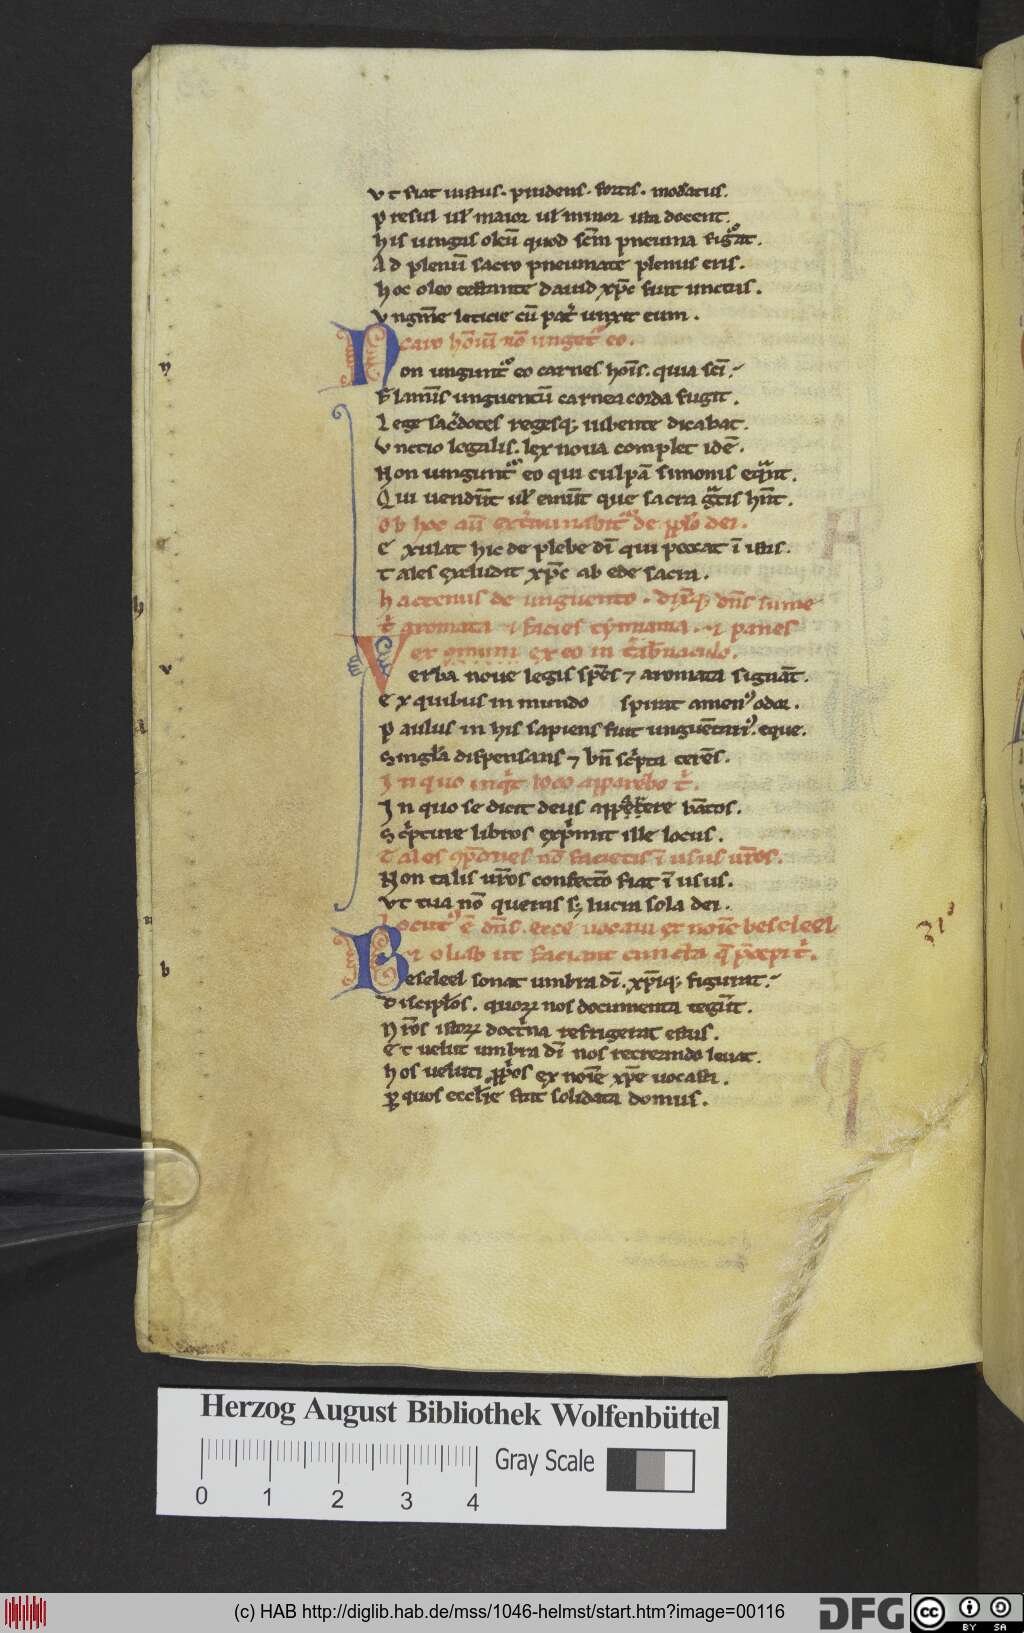 Vt fiat iustus. prudens. fortis. modatus.
Presul ul maior ul minor ista docent.
His ungais oleū quod scm pneuma figat.
Ad plenū sacro pneumate plenus eris.
hoc oleo testante dauid xpc fuit unctus.
Vngine leticie cū pat unxit eum.
N caro hoium nō unget eo.
on ungunt eo carnes hois. quia sci
Flamis unguentū carnea corda fugit.
Lege sacdotes regesq; iubente dicabat.
Vnctio legalis. lex noua complet idē.
Non ungunt eo qui culpā simonis
Qui uendūt ul emūt que sacra gtis hnt.
Ob hoc aū extminabit de pplo dei.
Exulat hic de plebe di qui peccat ī istis.
Tales excludit xpc ab ede sacra.
hactenus de unguento. dns sume
t aromata facies tymiama. panes
V
Verba noue legis spēs ⁊ aromata signāt.
Ex quibus in mundo spirat amen odor.
Paulus in his sapiens fuit unguētari. eque.
Singla dispensans ⁊ bn scpta terēs.
In quo loco apparebo t.
In quo se dicit deus bātos.
Scpture libros expmit ille locus.
Tales nō facietis ī usus uros.
Non talis uros confectō fiat ī usus.
Vt tua nō queras s; lucra sola dei.
Locut ē dns. ecce uocaui et noie beseleel
B ⁊ oliab ut faciant cuncta q pcepi t.
eseleel sonat umbra di. xpiq; figurat.
Disciplos. quoꝝ nos documenta tegūt.
Nros istoꝝ doctna refrigerat estus.
Et uelut umbra di nos recreando leuat.
hos ueluti ppos ex noie xpe uocasti.
ꝑ quos ecclie stat solidata domus.
n
h
v
n
b
Herzog August Bibliothek Wolfenbüttel
0 1 2 3 4
Gray Scale
(c) HAB http://diglib.hab.de/mss/1046-helmst/start.htm?image=00116
DFG
cc
BY SA